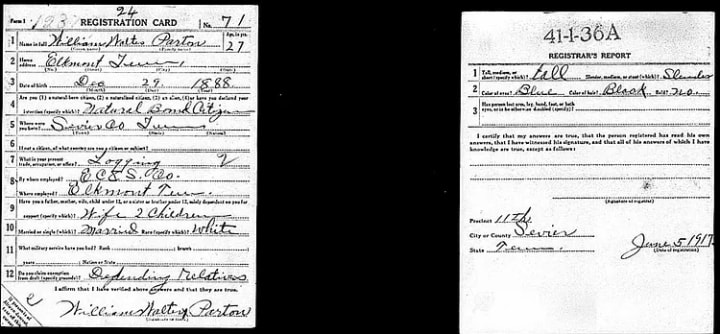 Form 1 193 24 REGISTRATION CARD No. 71
1 Name in full William Walter Parton Age, in yrs. 27
2 Home address Elkmont Tenn
3 Date of birth Dec 29 1888
4 Are you (1) a natural-born citizen, (2) a naturalized citizen, (3) an alien, (4) or have you declared your intention (specify which)? Natural Born Citizen
5 Where were you born? Sevier Co Tenn
6 If not a citizen, of what country are you a citizen or subject?
7 What is your present trade, occupation, or office? Logging 2
8 By whom employed? E C & S. Co.
Where employed? Elkmont Tenn.
9 Have you a father, mother, wife, child under 12, or a sister or brother under 12, solely dependent on you for support (specify which)? Wife 2 Children
10 Married or single (which)? Married Race (specify which)? White
11 What military service have you had? Rank Branch
years Nation or State
12 Do you claim exemption from draft (specify grounds)? Depending Relatives
I affirm that I have verified above answers and that they are true.
William Walter Parton
41-1-36A
REGISTRAR'S REPORT
1 Tall, medium, or short (specify which)? Tall Slender, medium, or stout (which)? Slender
2 Color of eyes? Blue Color of hair? Black Bald? no.
3 Has person lost arm, leg, hand, foot, or both eyes, or is he otherwise disabled (specify)?
I certify that my answers are true, that the person registered has read his own
answers, that I have witnessed his signature, and that all of his answers of which I have
knowledge are true, except as follows:
(Signature of registrar)
Precinct 11th
City or County Sevier
State Tenn. June 5 1917
(Date of registration)